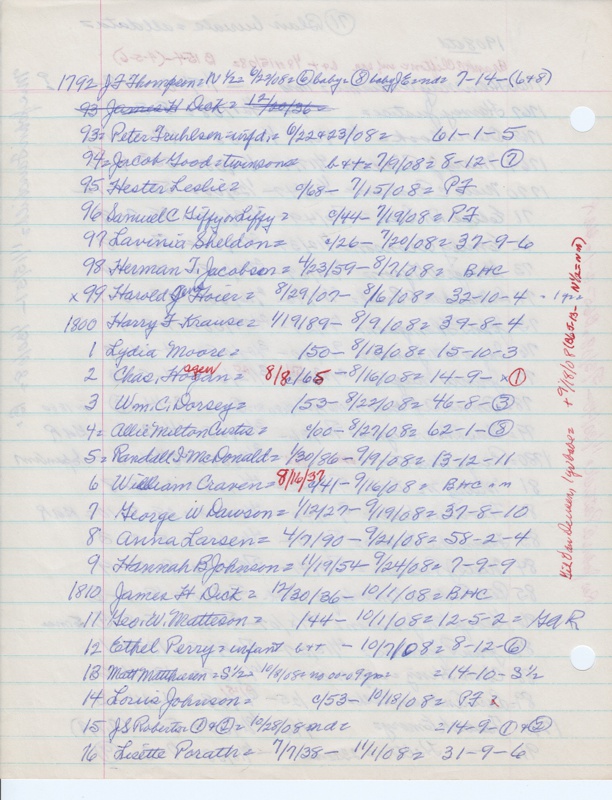 1792 J F Thompson = N 1/2 = 6/29/08 = ⑥ baby = ⑧ baby J E = nd = 7-14-(6+8)
93 James H Dick = 12/30/36 =
93 = Peter Truhlson = infd, = 6/22+23/08 = 61-1-5
94 = Jacob Good = twinsons b+t = 7/9/08 = 8-12-⑦
95 Hester Leslie = c/68 - 7/15/08 = PF
96 Samuel C Giffy or Liffy = c/44 - 7/19/08 = PF
97 Lavinia Sheldon = c/26 - 7/20/08 = 37-9-6
98 Herman T. Jacobson = 4/23/59 - 8/7/08 = BHC
x 99 Harold Hoier = 8/29/07 - 8/6/08 = 32-10-4 - 1 yr=
1800 Harry F Krause = 1/19/89 - 8/9/08 = 39-8-4
1 Lydia Moore = /50 - 8/13/08 = 15-10-3
2 Chas. Hogan = 8/8 c/65 - 8/16/08 = 14-9- x①
3 Wm. C. Dorsey = /53 - 8/22/08 = 46-8-③
4 = Allie Milton Custis = c/00 - 8/27/08 = 62-1-⑧
5 = Randall I. McDonald = 1/30/86 - 9/9/08 = 13-12-11
6 William Craven = 8/16/37 c/41 - 9/16/08 = BHC = m
7 George W Dawson = 1/12/27 - 9/19/08 = 37-8-10
8 Anna Larsen = 4/7/90 - 9/21/08 = 58-2-4
9 Hannah B Johnson = 11/19/54 9/24/08 = 7-9-9
1810 James H Dick = 12/30/36 - 10/1/08 = BHC
11 Geo. W. Mattison = /44 - 10/1/08 = 12-5-2 = GAR
12 Ethel Perry = infant b+t - 10/7/08 = 8-12-⑥
13 Matt Matthiesen = S 1/2 = 10/8/08 = no co-09 yr = = 14-10-S 1/2
14 Louis Johnson = c/53 - 10/18/08 = PF x
15 J S Roberts = ① + ② = 10/28/08 = nd = = 14-9-① + ②
16 Lisette Porath = 7/7/38 - 11/1/08 = 31-9-6